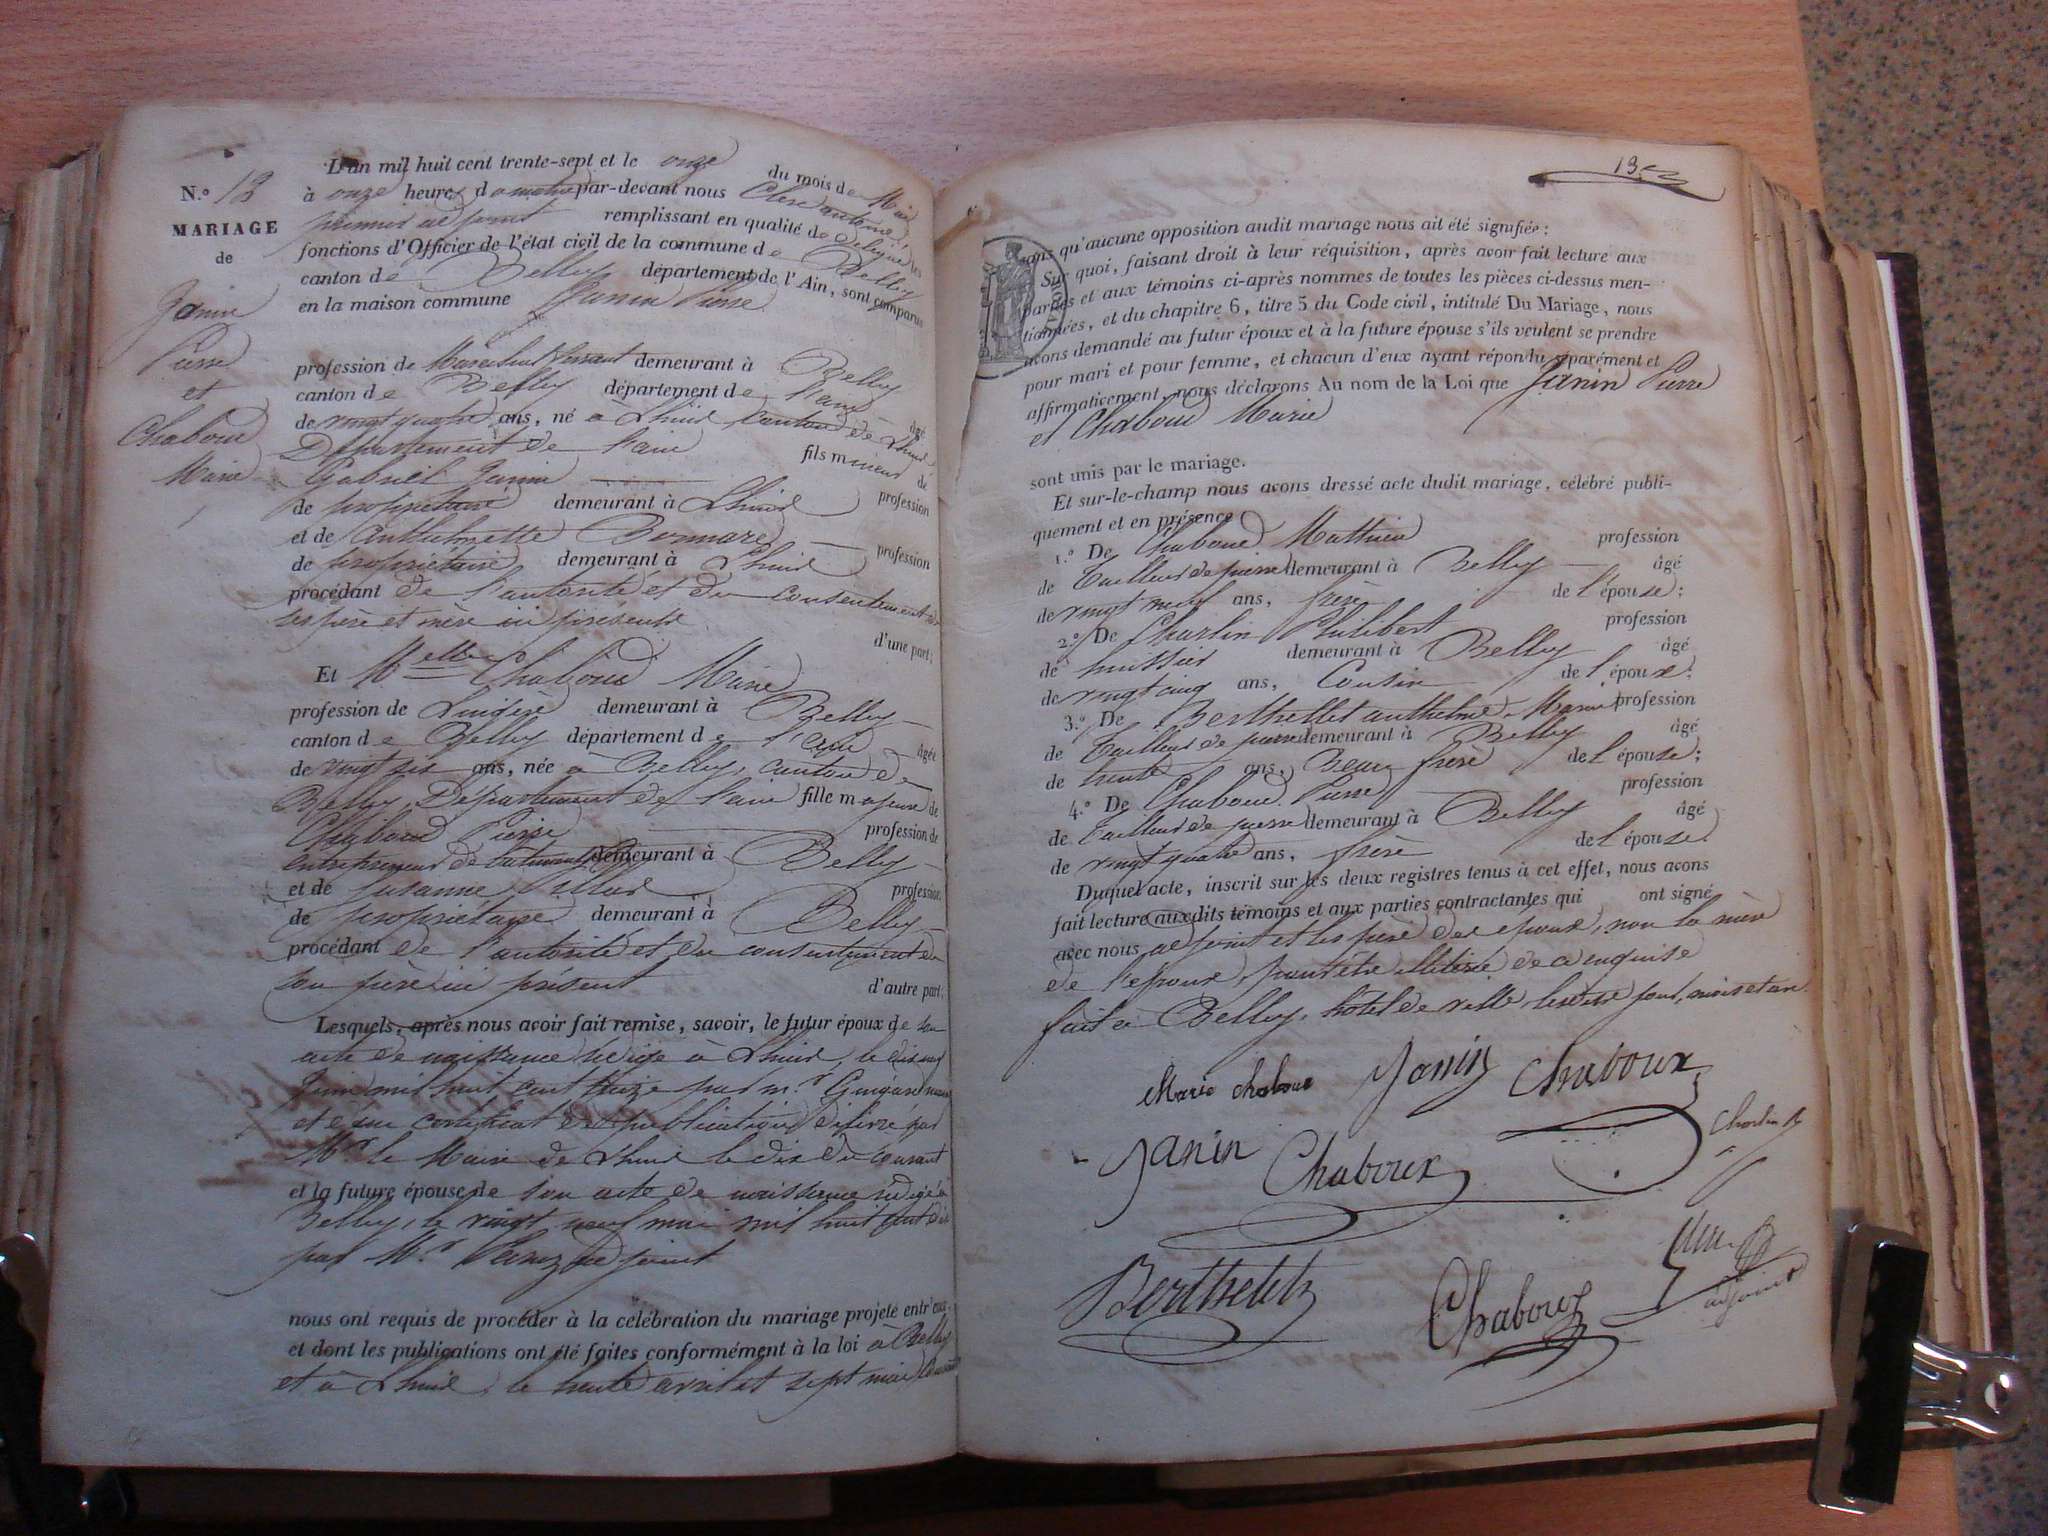 N.º 13
MARIAGE
de
Janin
Pierre
et
Chaboud
Marie
L'an mil huit cent trente-sept et le onze du mois de Mai
à onze heures du matin par-devant nous Clerc antelme
premier adjoint remplissant en qualité de délégué les
fonctions d'Officier de l'état civil de la commune de Belley
canton de Belley département de l'Ain, sont comparus
en la maison commune Janin Pierre
profession de Maréchal ferrant demeurant à Belley
canton de Belley département de l'ain âgé
de vingt quatre ans, né à Lhuis canton de Lhuis
Département de l'ain fils mineur de
Gabriel Janin profession
de propriétaire demeurant à Lhuis
et de anthelmette Bonnard profession
de propriétaire demeurant à Lhuis
procédant de l'autorité et du consentement de
ses père et mère ici présents
d'une part;
Et Melle Chaboud Marie
profession de Lingère demeurant à Belley
canton de Belley département de l'ain âgée
de vingt six ans, née à Belley, canton de
Belley, Département de l'ain fille majeure de
Chaboud Pierre profession de
entrepreneur de batiments demeurant à Belley
et de Susanne profession
de propriétaire demeurant à Belley
procédant de l'autorité et du consentement de
son père ici présent d'autre part;
Lesquels, après nous avoir fait remise, savoir, le futur époux de son
acte de naissance rédigé à Lhuis, le dix neuf
Juin mil huit cent treize par m.r maire
et d'un certificat de publication délivré par
Mr. le Maire de Lhuis le dix du courant
et la future épouse de son acte de naissance rédigé à
Belley, le vingt neuf mai mil huit cent dix
par Mr. adjoint
nous ont requis de procéder à la célébration du mariage projeté entr'eux
et dont les publications ont été faites conformément à la loi à Belley
et à Lhuis, le trente avril et sept mai courant
13
sans qu'aucune opposition audit mariage nous ait été signifiée;
Sur quoi, faisant droit à leur réquisition, après avoir fait lecture aux
parties et aux témoins ci-après nommés de toutes les pièces ci-dessus men-
tionnées, et du chapitre 6, titre 5 du Code civil, intitulé Du Mariage, nous
avons demandé au futur époux et à la future épouse s'ils veulent se prendre
pour mari et pour femme, et chacun d'eux ayant répondu séparément et
affirmativement, nous déclarons Au nom de la Loi que Janin Pierre
et Chaboud Marie
sont unis par le mariage.
Et sur-le-champ nous avons dressé acte dudit mariage, célébré publi-
quement et en présence
1.º De Chaboud Mathieu profession
de Tailleur de pierre demeurant à Belley âgé
de vingt neuf ans, frère de l'épouse;
2.º De Charlin Philibert profession
de huissier demeurant à Belley âgé
de vingt cinq ans, Cousin de l'époux;
3.º De Berthellet anthelme Marie profession
de Tailleur de pierre demeurant à Belley âgé
de trente ans, Beau frère de l'épouse;
4.º De Chaboud Pierre profession
de Tailleur de pierre demeurant à Belley âgé
de vingt quatre ans, frère de l'épouse.
Duquel acte, inscrit sur les deux registres tenus à cet effet, nous avons
fait lecture auxdits témoins et aux parties contractantes qui ont signé
avec nous adjoint et les père des époux, non la mère
de l'époux, pour être illitérée de ce enquise
fait à Belley, hôtel de ville, lesdits jour, mois et an.
Marie chaboux Janin Chaboux
Janin Chaboux Charlin
Berthelet Chaboux
adjoint